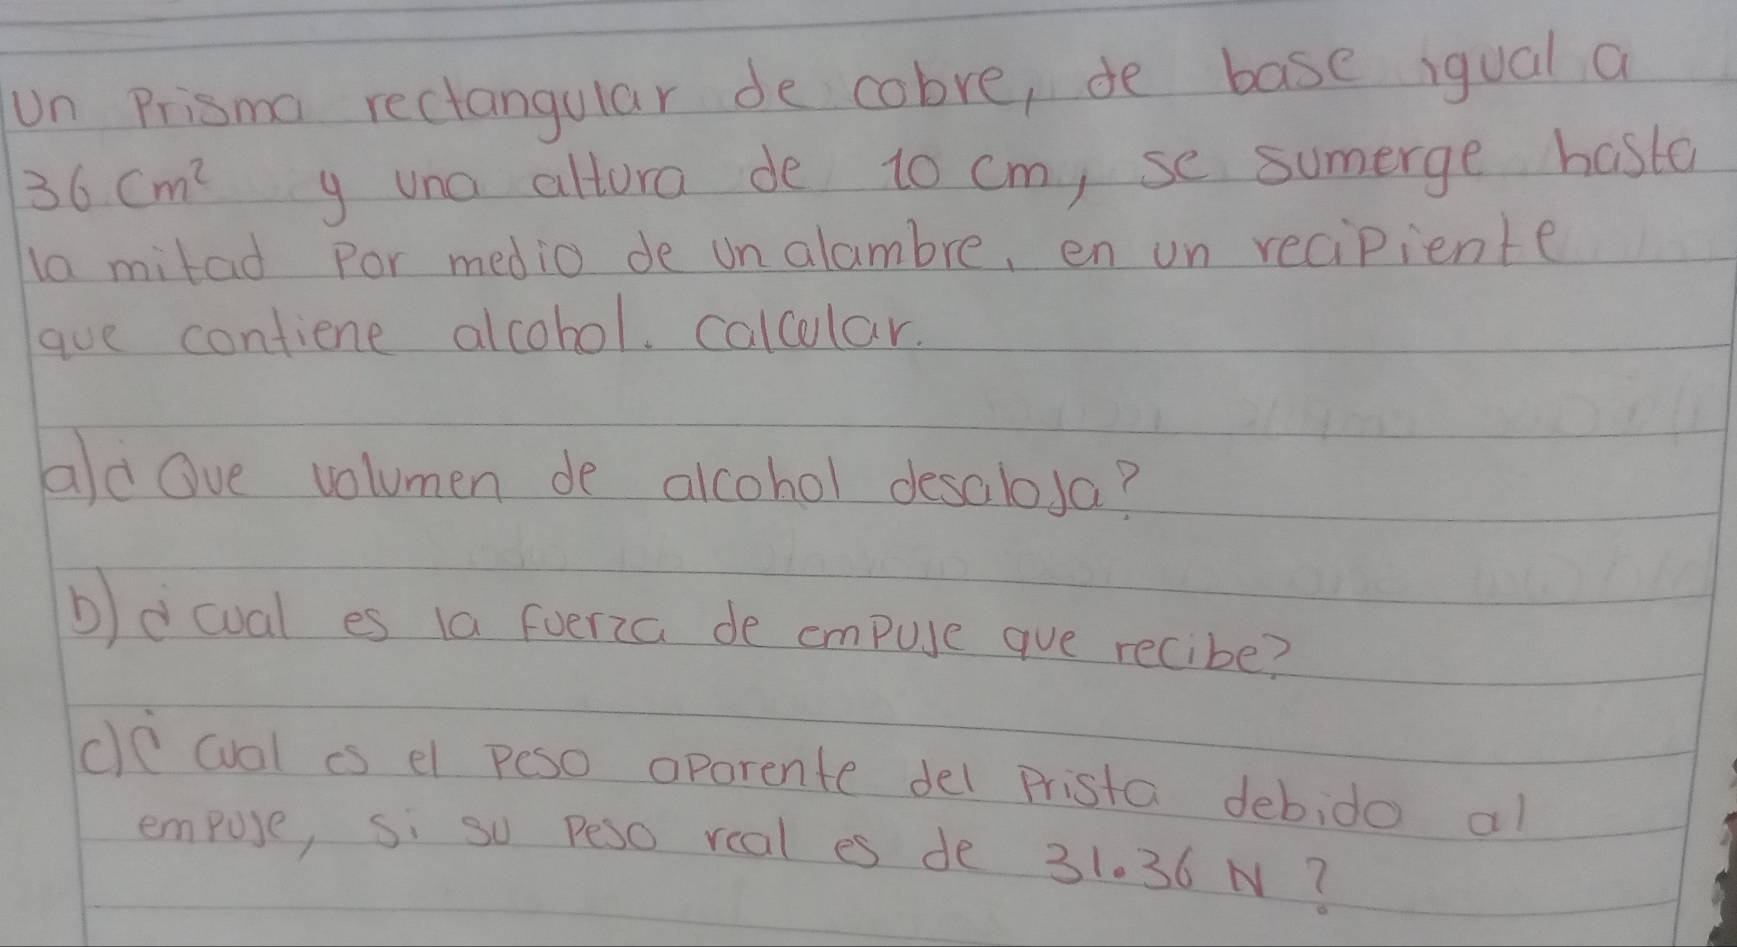 Un Prisma rectangular de cobre, de base igual a
36 cm² y una altura de 10 cm, se sumerge hasta
la mitad Por medio de un alambre, en un recipiente
que contiene alcohol. calcular.
a)¿Que volumen de alcohol desaloja?
b)¿cual es la fuerza de empuje que recibe?
c)¿cual es el peso aparente del prista debido al
empuje, si su peso real es de 31.36 N?